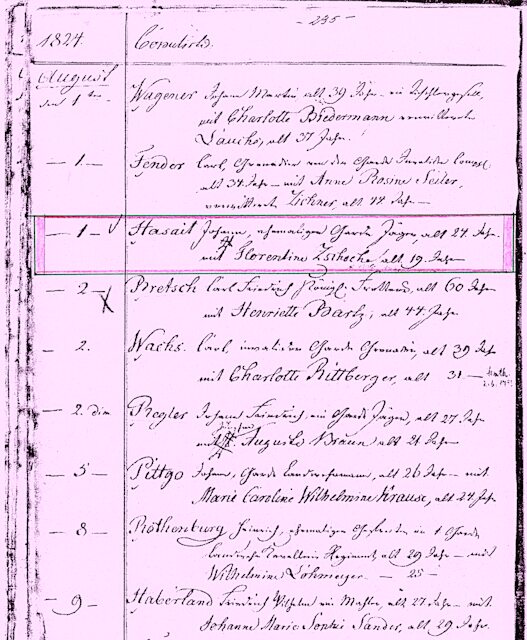 - 235 -
1824. Copulirte.
August
den 1ten Wagener Johann Martin alt 39 Jahr - ein Tischlergesell,
mit Charlotte Biedermann verwittwete
alt 37 Jahr.
- 1 - Fender Carl, Grenadier von der Garde Invaliden Comp.
alt 34 Jahr - mit Anne Rosine Seiler,
verwittwete Zichner, alt 44 Jahr -
- 1 - Hasait Johann, ehemaliger Garde Jäger, alt 27 Jahr.
mit Florentine Zschocke, alt 19. Jahr
- 2 - Bretsch Carl Friedrich Königl. alt 60 Jahr
mit Henriette Bartz, alt 44 Jahr.
- 2. Wachs. Carl, invalider Garde Grenadier, alt 39 Jahr
mit Charlotte Rittberger, alt 31 -
- 2. Regler Johann Friedrich, ein Garde Jäger, alt 27 Jahr
mit Auguste Braun alt 21 Jahr
- 5 - Pittgo Johann, Garde alt 26 Jahr - mit
Marie Carolene Wilhelmine Krause, alt 24 Jahr
- 8 - Rothenburg Heinrich, ehemaliger
Cavallerie Regiment alt 29 Jahr - mit
Wilhelmine Löhmeyer - 25 -
- 9 - Haberland Friedrich Wilhelm ein Mahler, alt 27 Jahr - mit
Johanne Marie Sophie Sander, alt 29 Jahr.